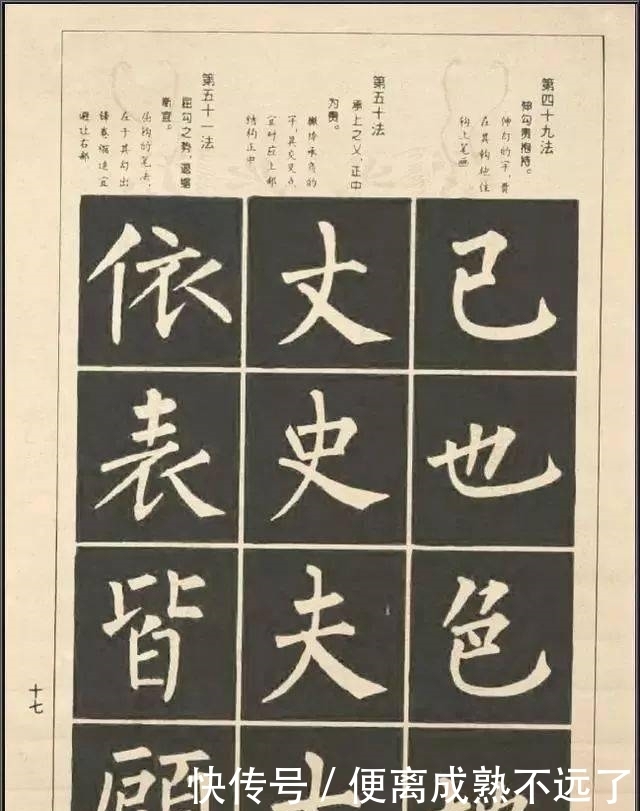 第四十九法
伸勾贵抱持。
伸勾的字,贵
在其钩抱住
钩上笔画
已
也
色
第五十法
承上之乂,正中
为贵。
撇捺承负的
字,其交叉点
宜对应上部
结构正中
丈
史
夫
第五十一法
屈勾之势,退缩
斯宜。
屈钩的笔法,
在于其勾出
避让右部
依
表
皆
十七
快传号 / 便离成熟不远了